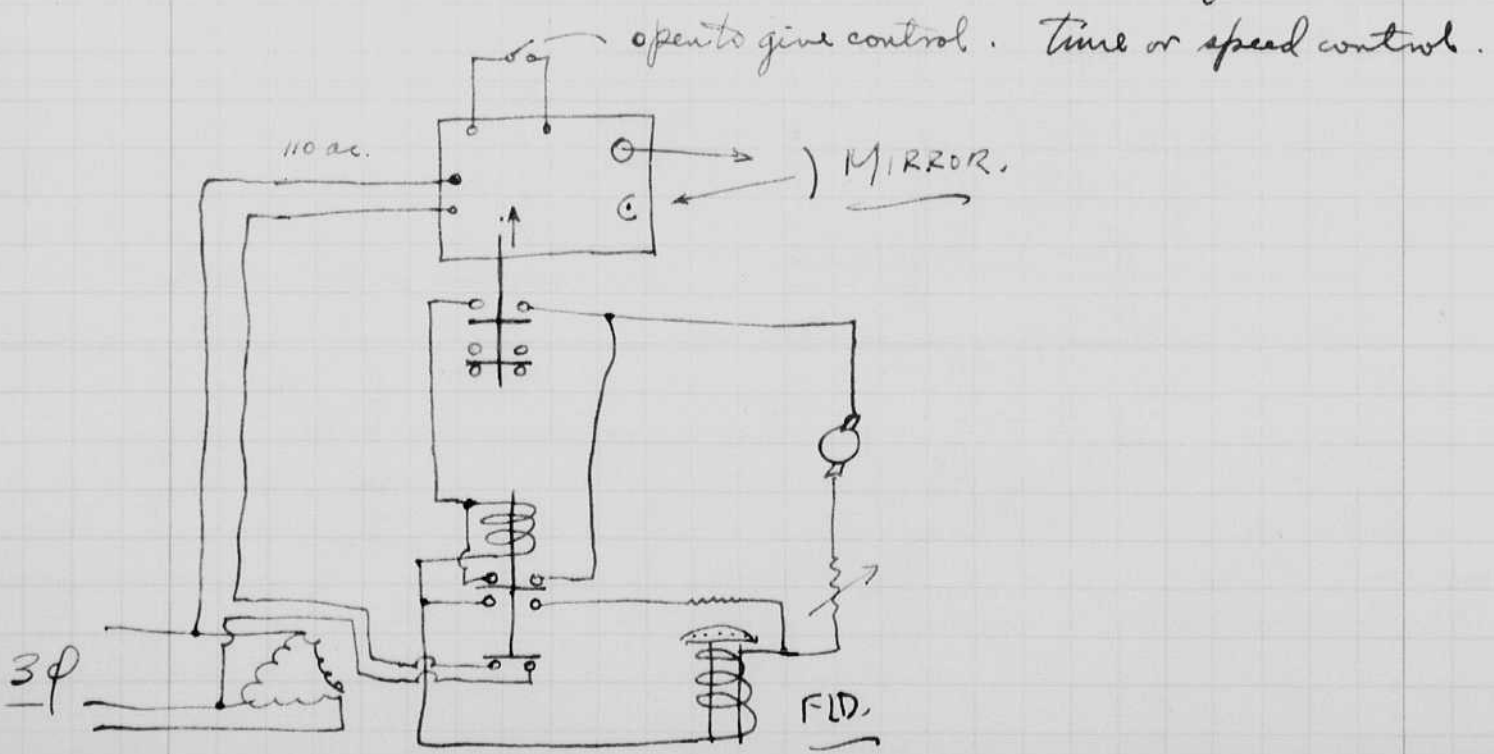 open to give control. Time or speed control.
110 ac.
MIRROR.
3φ
FLD.